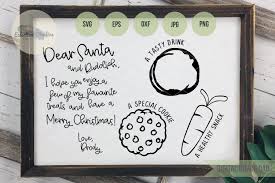 SVG EPS DXF JPG PNG
Dear Santa
and Rudolph,
I hope you enjoy a
few of my favorite
treats and have a
Merry Christmas!
Love,
Brody
A TASTY DRINK
A SPECIAL COOKIE
A HEALTHY SNACK